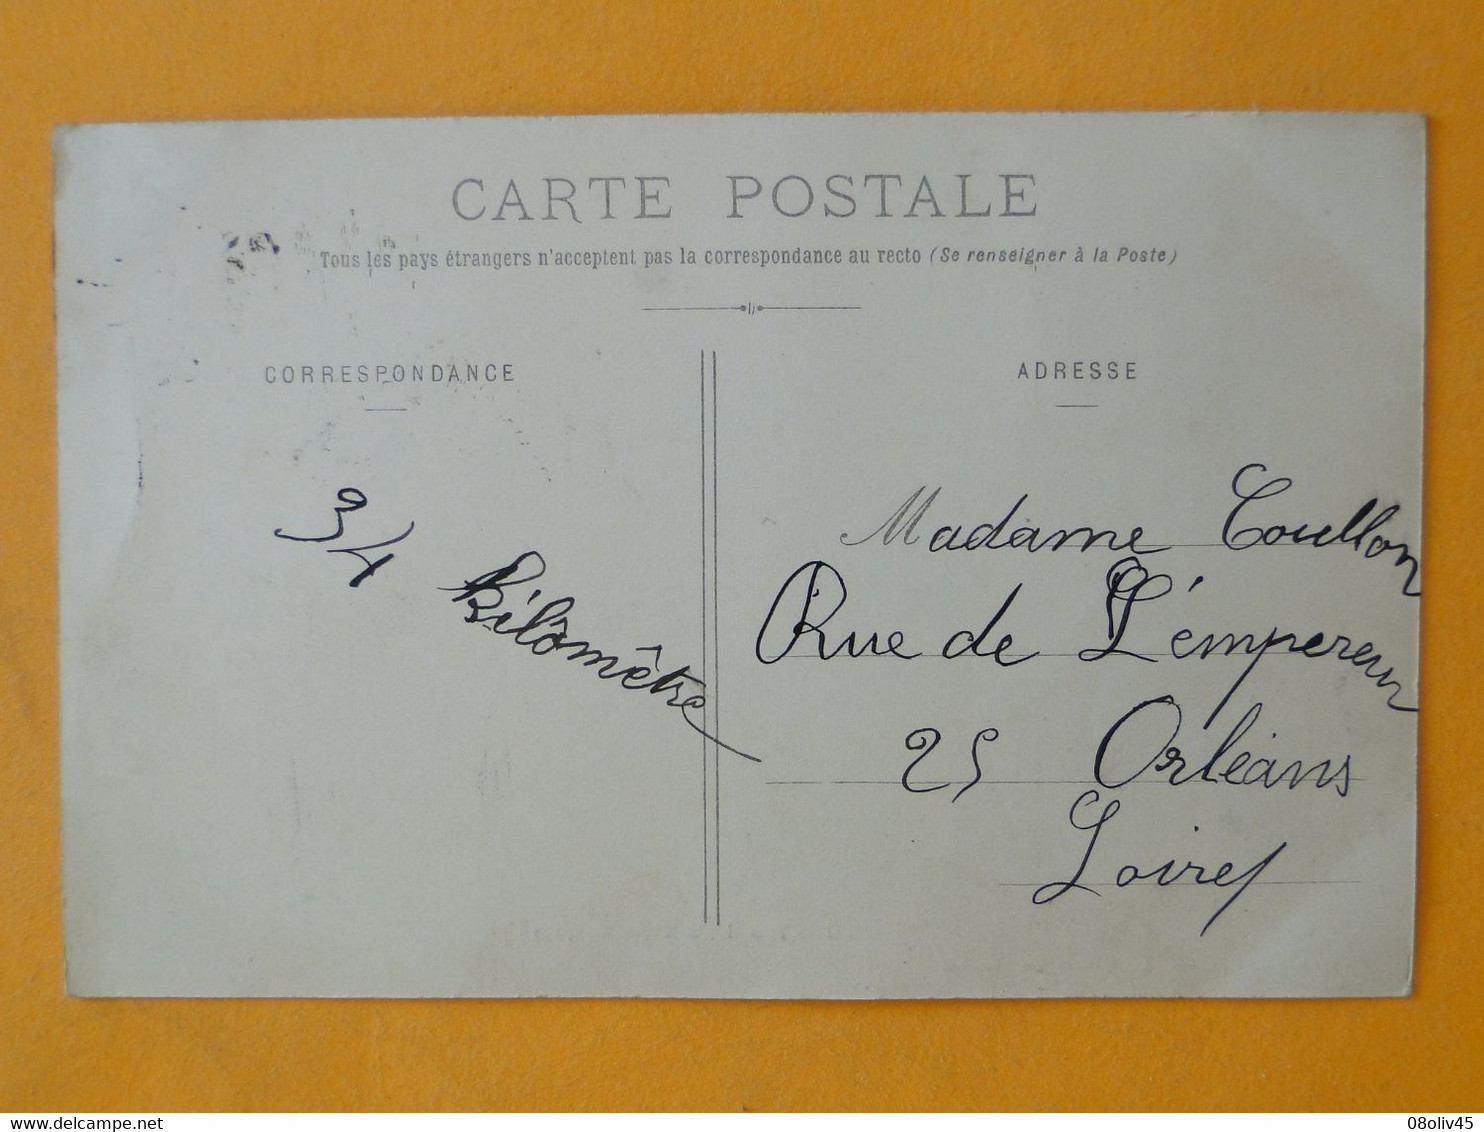 CARTE POSTALE
Tous les pays étrangers n'acceptent pas la correspondance au recto (Se renseigner à la Poste)
CORRESPONDANCE
ADRESSE
34 kilomètre
Madame Coullon
Rue de L'émpereur
25 Orléans
Loiret
08oliv45